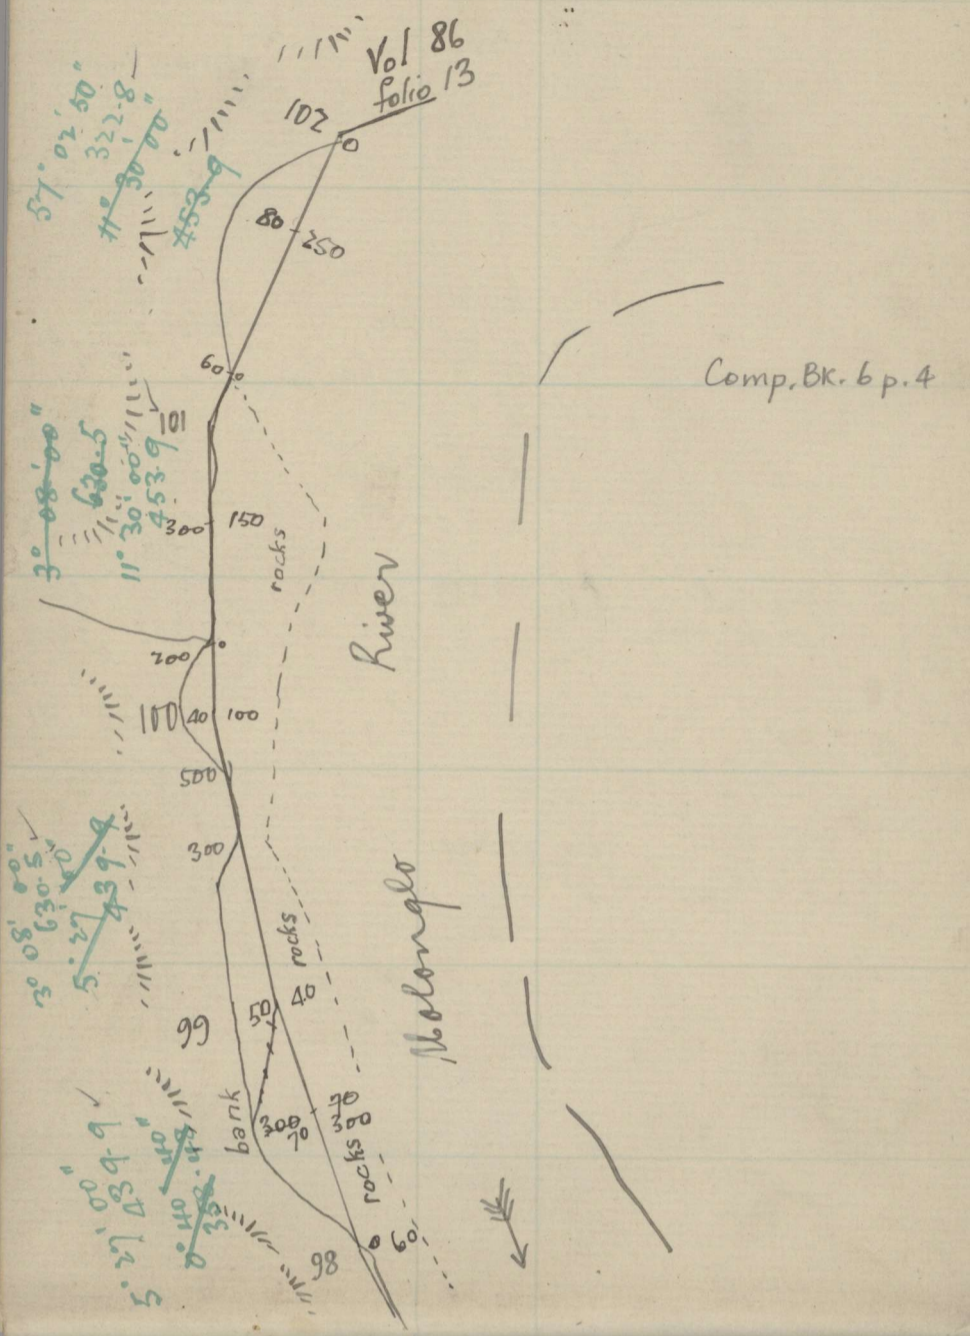 Vol 86
folio 13
102
0
57° 02' 50"
322.8
11° 30' 00"
453.9
80
250
Comp. Bk. 6 p. 4
60
101
3° 08' 00"
630.5
11° 30' 00"
453.9
300
150
rocks
River
200
100
40
100
500
300
3° 08' 00"
630.5
5° 27' 00"
439.9
rocks
Molonglo
40
50
99
bank
70
300
70
rocks
5° 27' 00"
439.9
0° 40' 40"
60
98